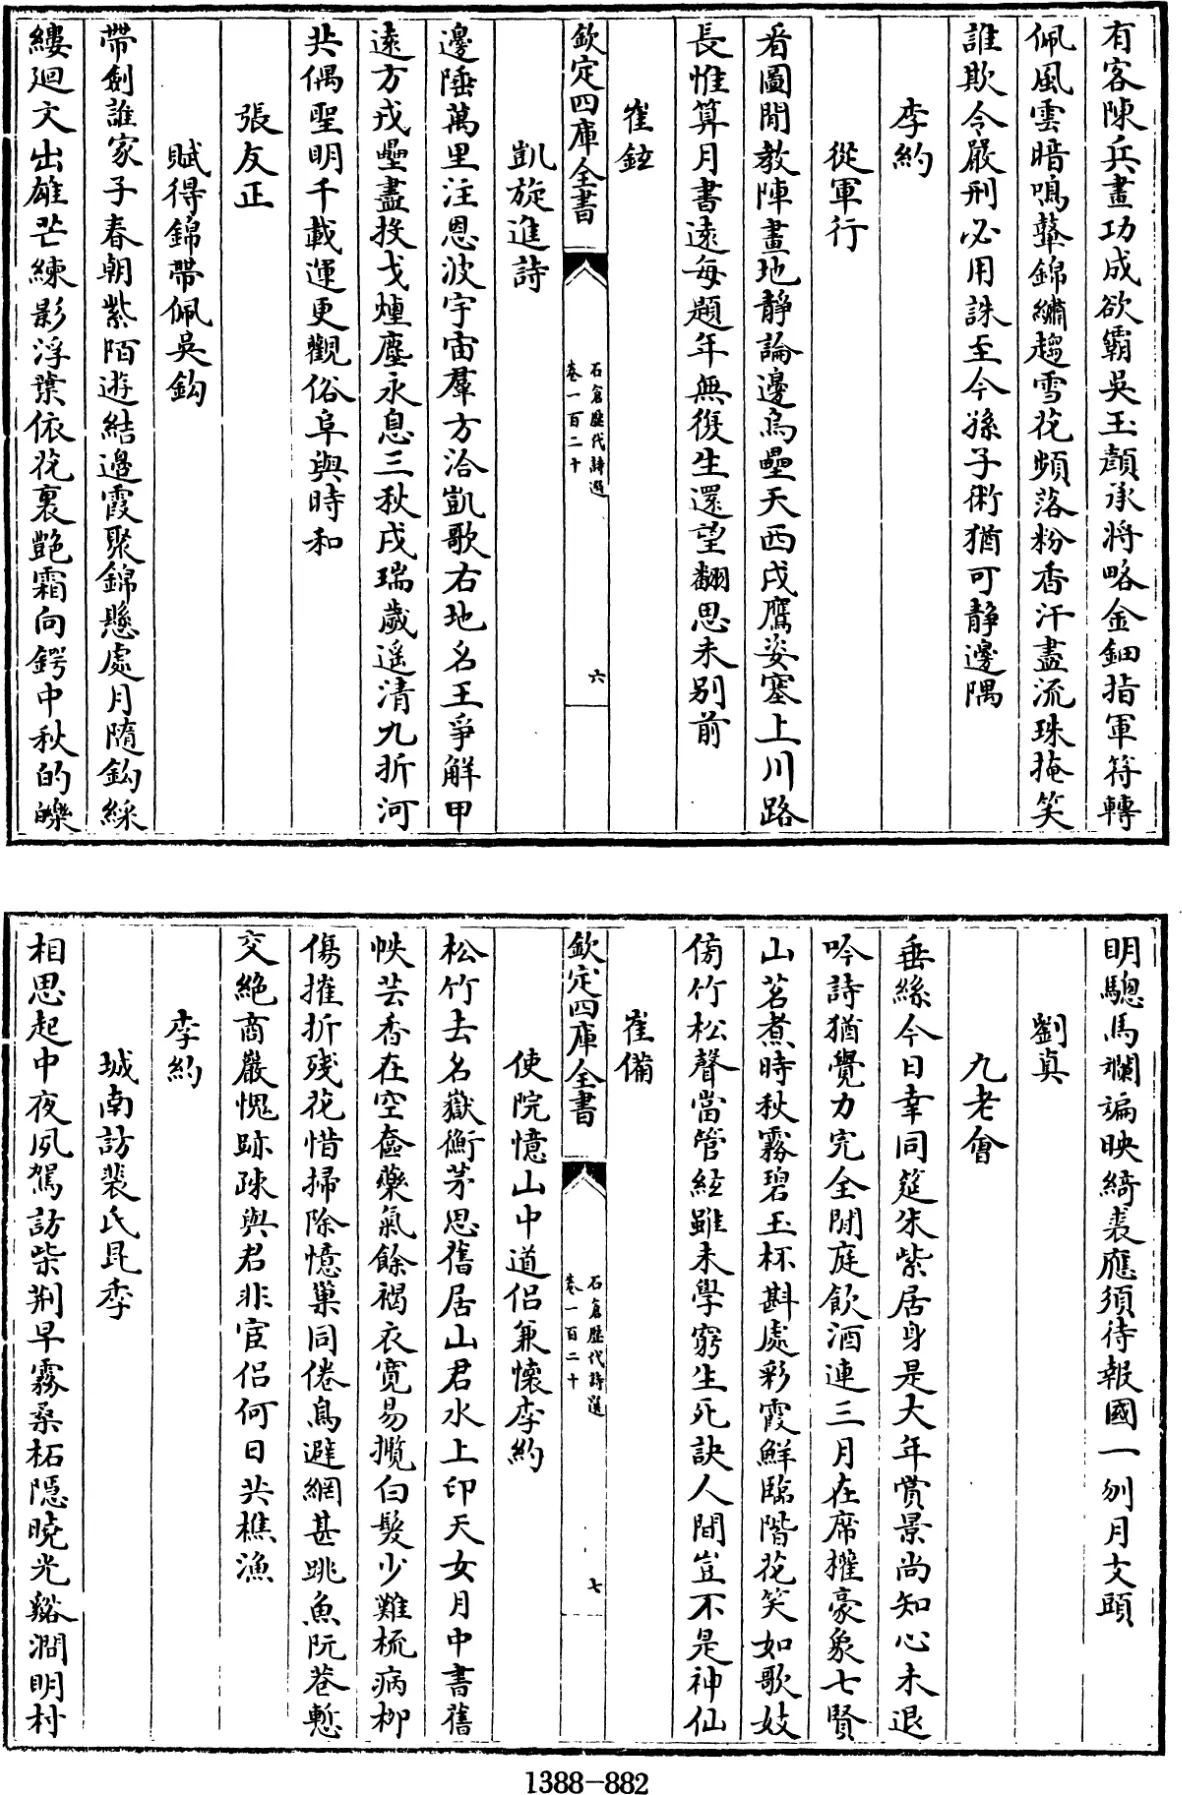 有客陳兵畫功成欲霸吳玉顔承將略金鈿指軍符轉
佩風雲暗鳴鼙錦繡趨雪花頻落粉香汗盡流珠掩笑
誰欺令嚴刑必用誅至今孫子術猶可靜邊隅
李約
從軍行
看圖閒教陣畫地靜論邊烏壘天西戍鷹姿塞上川路
長惟算月書遠每題年無復生還望翻思未别前
崔鉉
欽定四庫全書
石倉歷代詩選
卷一百二十
六
凱旋進詩
邊陲萬里注恩波宇宙羣方洽凱歌右地名王爭解甲
遠方戎壘盡投戈煙塵永息三秋戍瑞歲遥清九折河
共偶聖明千載運更觀俗阜與時和
張友正
賦得錦帶佩吳鈎
帶劍誰家子春朝紫陌遊結邊霞聚錦懸處月隨鈎綵
縷迴文出雄芒練影浮葉依花裏艶霜向鍔中秋的皪
明驄馬斕斒映綺裘應須待報國一刎月支頭
劉真
九老會
垂絲今日幸同筵朱紫居身是大年賞景尚知心未退
吟詩猶覺力完全閒庭飲酒連三月在席權豪象七賢
山茗煮時秋霧碧玉杯斟處彩霞鮮臨階花笑如歌妓
傍竹松聲當管絃雖未學窮生死訣人間豈不是神仙
崔備
欽定四庫全書
石倉歷代詩選
卷一百二十
七
使院憶山中道侣兼懷李約
松竹去名嶽衡茅思舊居山君水上印天女月中書舊
帙芸香在空奩藥氣餘褐衣寛易攬白髮少難梳病柳
傷摧折殘花惜掃除憶巢同倦鳥避網甚跳魚阮巷慙
交絶商巖愧跡疎與君非宦侣何日共樵漁
李約
城南訪裴氏昆季
相思起中夜夙駕訪柴荆早霧桑柘隱曉光谿澗明村
1388-882